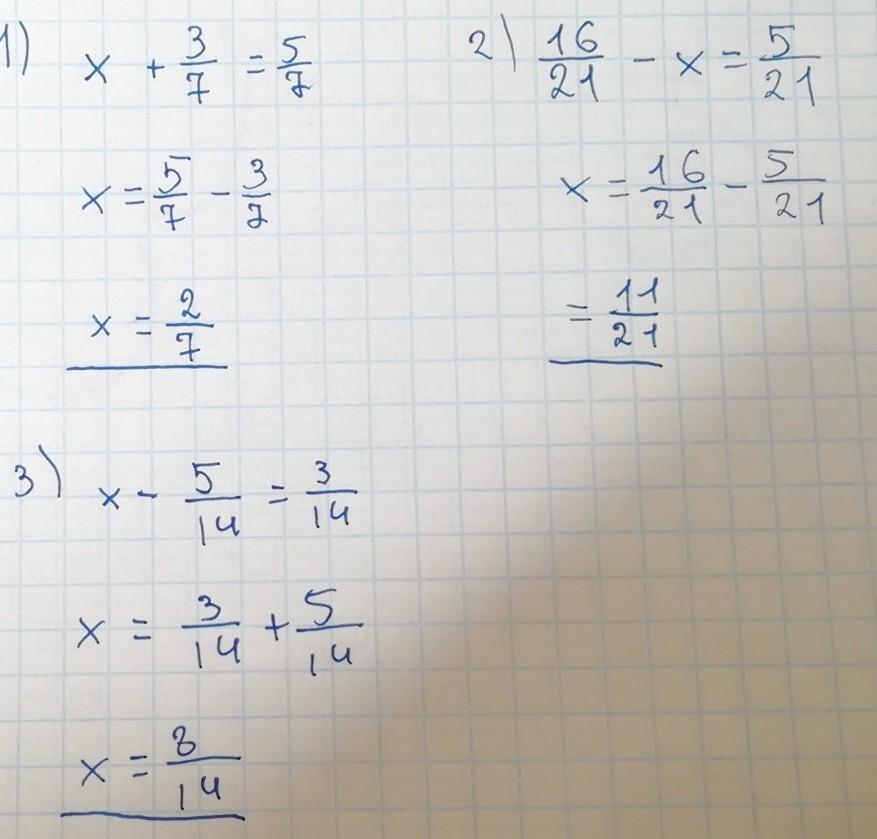 1) x + 3/7 = 5/7
x = 5/7 - 3/7
x = 2/7
2) 16/21 - x = 5/21
x = 16/21 - 5/21
= 11/21
3) x - 5/14 = 3/14
x = 3/14 + 5/14
x = 8/14